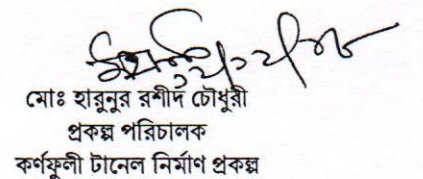 মোঃ হারুনুর রশীদ চৌধুরী
প্রকল্প পরিচালক
কর্ণফুলী টানেল নির্মাণ প্রকল্প